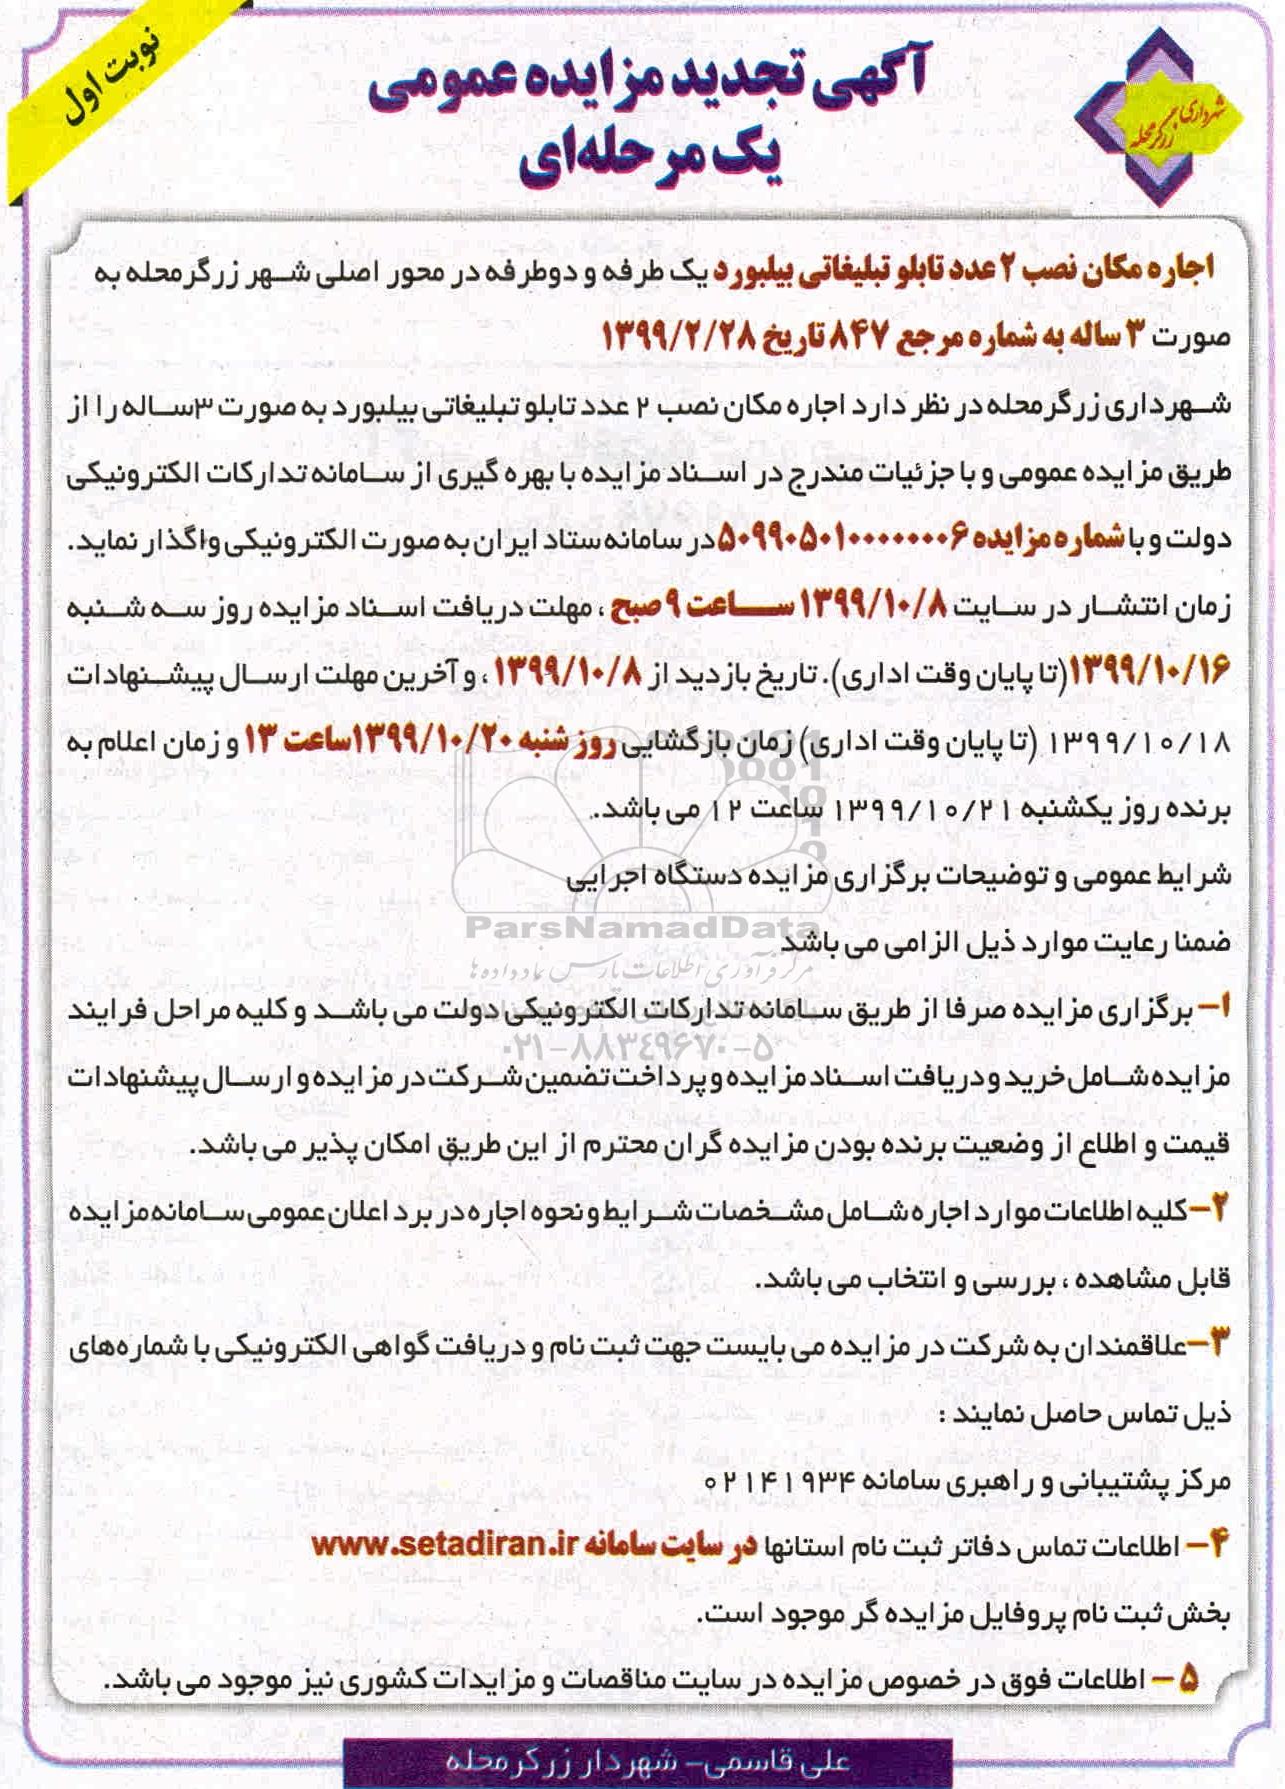 نوبت اول
آگهی تجدید مزایده عمومی
یک مرحله‌ای
شهرداری زرگر محله
اجاره مکان نصب ۲ عدد تابلو تبلیغاتی بیلبورد یک طرفه و دوطرفه در محور اصلی شهر زرگر محله به
صورت ۳ ساله به شماره مرجع ۸۴۷ تاریخ ۱۳۹۹/۲/۲۸
شهرداری زرگر محله در نظر دارد اجاره مکان نصب ۲ عدد تابلو تبلیغاتی بیلبورد به صورت ۳ساله را از
طریق مزایده عمومی و با جزئیات مندرج در اسناد مزایده با بهره گیری از سامانه تدارکات الکترونیکی
دولت و با شماره مزایده ۵۰۹۹۰۵۰۱۰۰۰۰۰۰۰۶ در سامانه ستاد ایران به صورت الکترونیکی واگذار نماید.
زمان انتشار در سایت ۱۳۹۹/۱۰/۸ ساعت ۹ صبح ، مهلت دریافت اسناد مزایده روز سه شنبه
۱۳۹۹/۱۰/۱۶(تا پایان وقت اداری). تاریخ بازدید از ۱۳۹۹/۱۰/۸ ، و آخرین مهلت ارسال پیشنهادات
۱۳۹۹/۱۰/۱۸ (تا پایان وقت اداری) زمان بازگشایی روز شنبه ۱۳۹۹/۱۰/۲۰ساعت ۱۳ و زمان اعلام به
برنده روز یکشنبه ۱۳۹۹/۱۰/۲۱ ساعت ۱۲ می باشد.
شرایط عمومی و توضیحات برگزاری مزایده دستگاه اجرایی
ParsNamadData
ضمنا رعایت موارد ذیل الزامی می باشد
مرکز فرآوری اطلاعات پارس نماد داده ها
۱- برگزاری مزایده صرفا از طریق سامانه تدارکات الکترونیکی دولت می باشد و کلیه مراحل فرایند
۰۲۱-۸۸۳۴۹۶۷۰-۵
مزایده شامل خرید و دریافت اسناد مزایده و پرداخت تضمین شرکت در مزایده و ارسال پیشنهادات
قیمت و اطلاع از وضعیت برنده بودن مزایده گران محترم از این طریق امکان پذیر می باشد.
۲-کلیه اطلاعات موارد اجاره شامل مشخصات شرایط و نحوه اجاره در برد اعلان عمومی سامانه مزایده
قابل مشاهده ، بررسی و انتخاب می باشد.
۳-علاقمندان به شرکت در مزایده می بایست جهت ثبت نام و دریافت گواهی الکترونیکی با شماره‌های
ذیل تماس حاصل نمایند :
مرکز پشتیبانی و راهبری سامانه ۰۲۱۴۱۹۳۴
۴- اطلاعات تماس دفاتر ثبت نام استانها در سایت سامانه www.setadiran.ir
بخش ثبت نام پروفایل مزایده گر موجود است.
۵- اطلاعات فوق در خصوص مزایده در سایت مناقصات و مزایدات کشوری نیز موجود می باشد.
علی قاسمی- شهردار زرگر محله